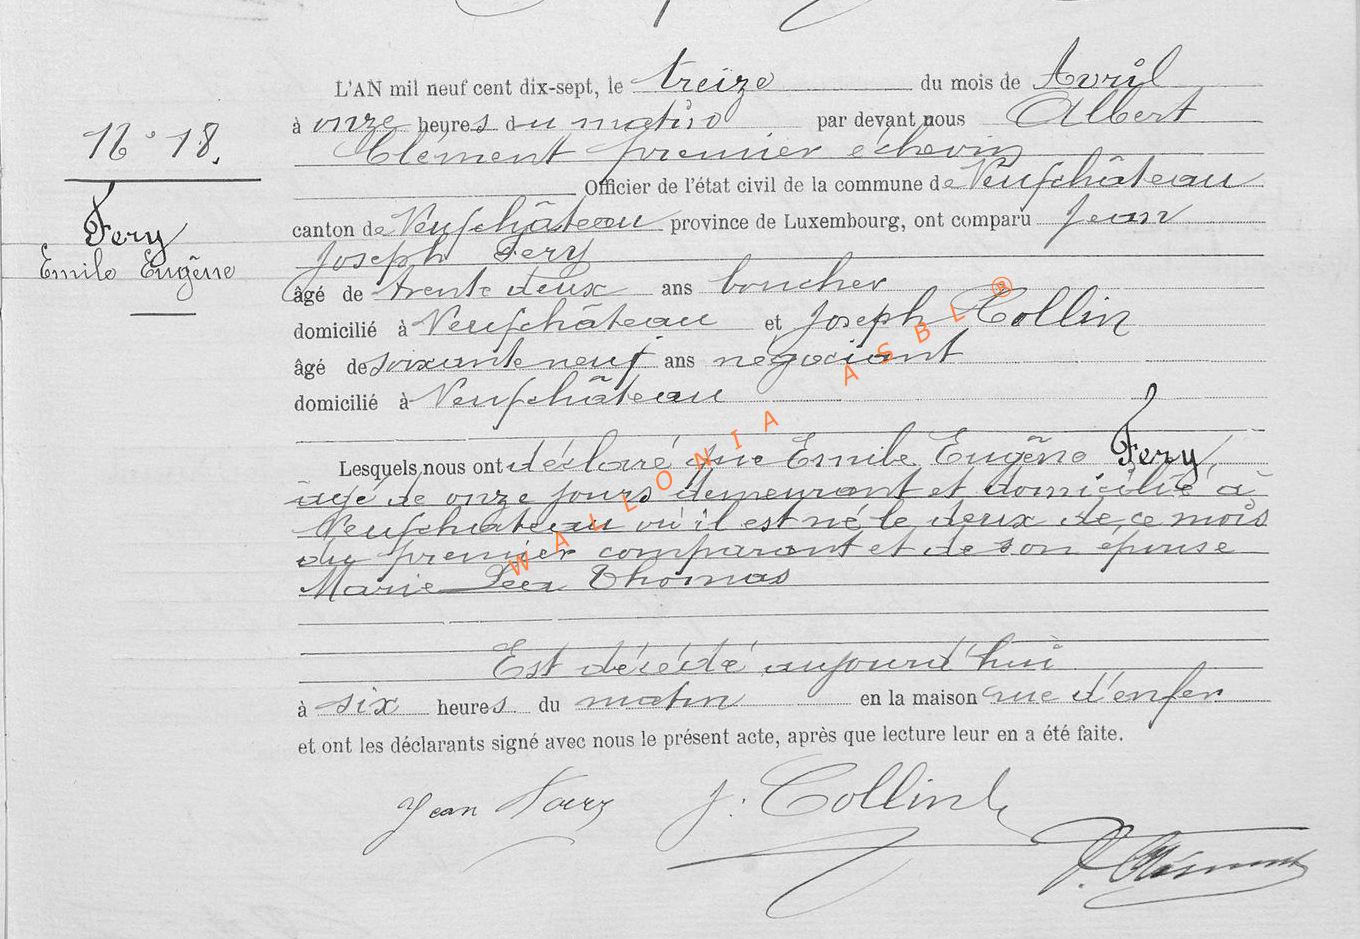 L'AN mil neuf cent dix-sept, le treize du mois de Avril
à onze heures du matin par devant nous Albert
Clément premier échevin
N° 18.
Officier de l'état civil de la commune de Neufchâteau
Fery
Emile Eugène
canton de Neufchâteau province de Luxembourg, ont comparu Jean
Joseph Fery
âgé de trente deux ans boucher
domicilié à Neufchâteau et Joseph Collin
âgé de soixante neuf ans négociant
domicilié à Neufchâteau
Lesquels nous ont déclaré que Emile Eugène Fery,
âgé de onze jours demeurant et domicilié à
Neufchateau où il est né le deux de ce mois
du premier comparant et de son épouse
Marie Thomas
Est décédé aujourd'hui
à six heures du matin en la maison rue d'enfer
et ont les déclarants signé avec nous le présent acte, après que lecture leur en a été faite.
Jean Fery J. Collin
Clément
WALLONIA ASBL ®